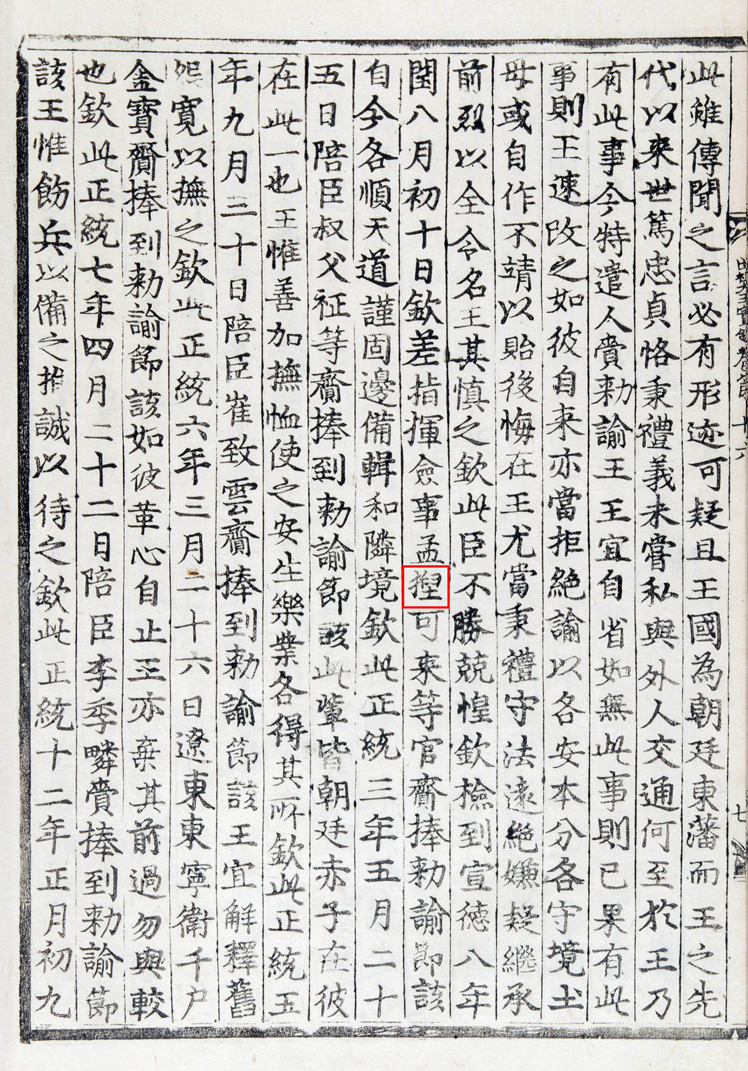 此雖傳聞之言必有形迹可疑且王國為朝廷東藩而王之先
代以来世篤忠貞恪秉禮義未嘗私與外人交通何至於王乃
有此事今特遣人賫勅諭王王宜自省如無此事則已果有此
事則王速改之如彼自来亦當拒絶諭以各安本分各守境土
毋或自作不靖以貽後悔在王尤當秉禮守法遠絶嫌疑繼承
前烈以全令名王其慎之欽此臣不勝兢惶欽檢到宣徳八年
閏八月初十日欽差指揮僉事孟捏可来等官齎捧勅諭節該
自今各順天道謹固邊備輯和隣境欽此正統三年五月二十
五日陪臣叔父祉等齎捧到勅諭節該此輩皆朝廷赤子在彼
在此一也王惟善加撫恤使之安生樂業各得其所欽此正統五
年九月三十日陪臣崔致雲齎捧到勅諭節該王宜解釋舊
怨寛以撫之欽此正統六年三月二十六日遼東東寧衛千户
金寶齎捧到勅諭節該如彼革心自止王亦棄其前過勿與較
也欽此正統七年四月二十二日陪臣李季疄賫捧到勅諭節
該王惟飭兵以備之推誠以待之欽此正統十二年正月初九